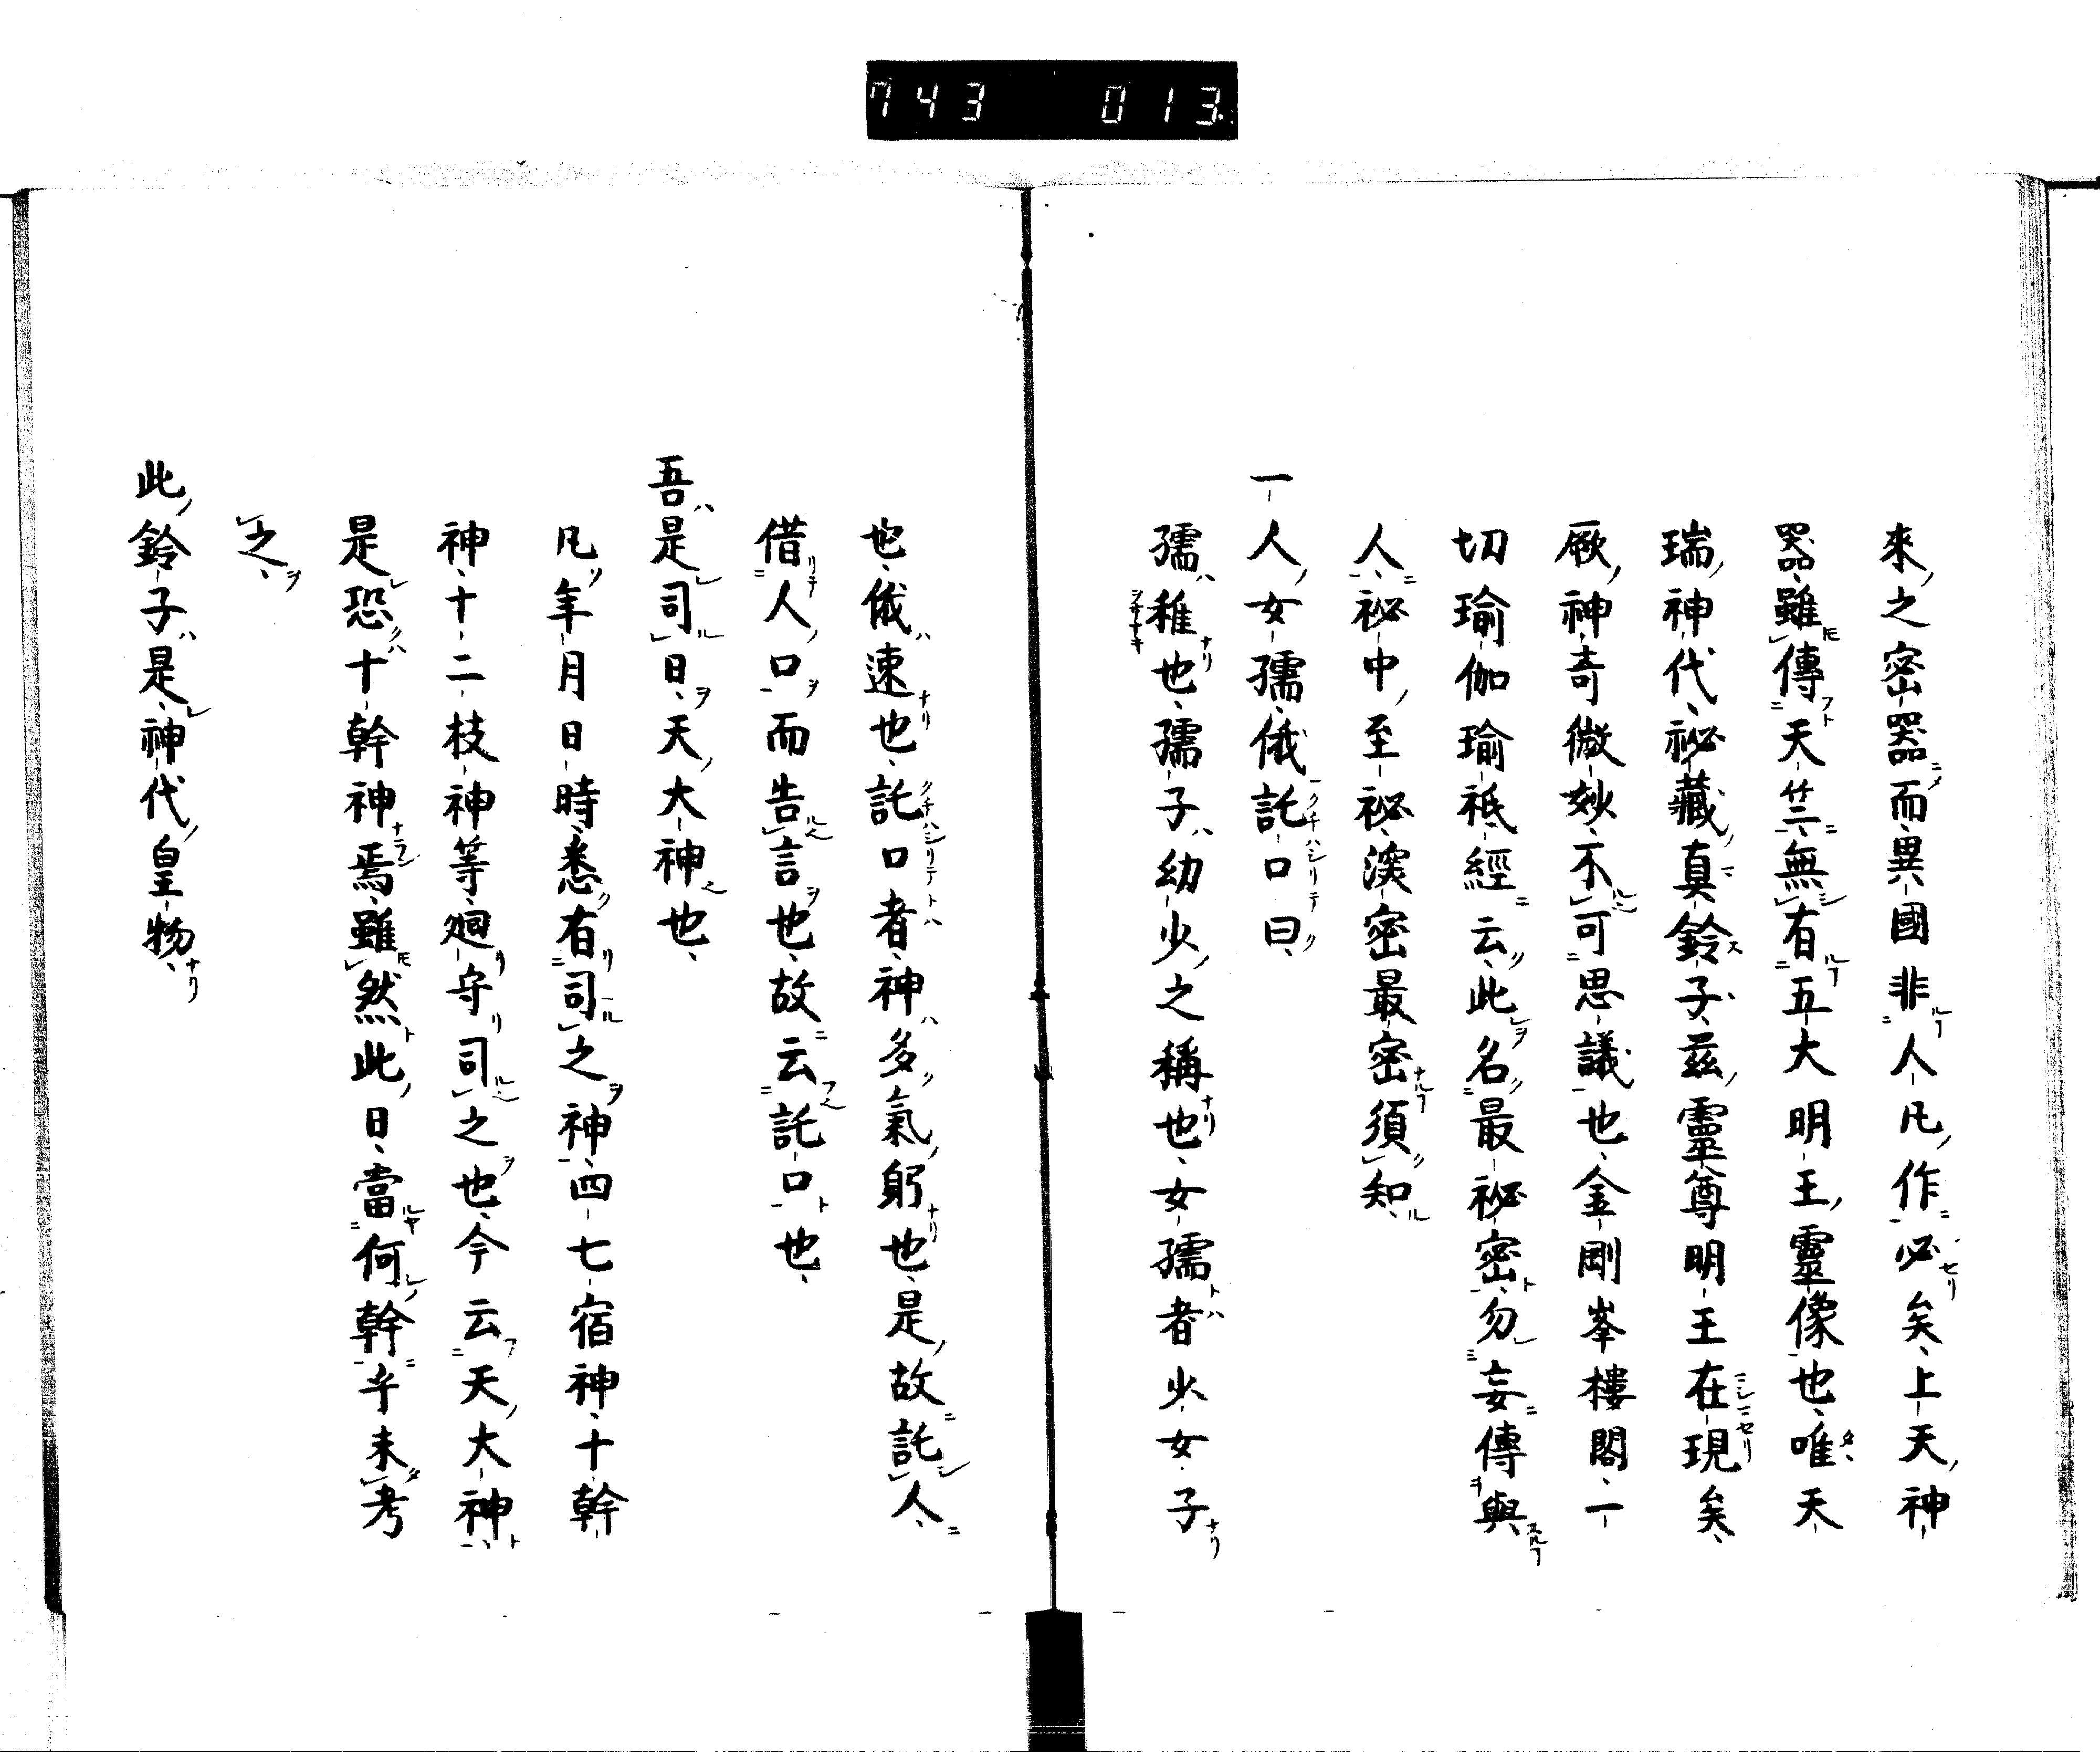 743 013
來之密器而異國非人凡作必矣上天神
器雖傳天竺無有五大明王靈像也唯天
瑞神代祕藏真鈴子茲靈尊明王在現矣
厥神奇微妙不可思議也金剛峯樓閣一
切瑜伽瑜祇經云此名最祕密勿妄傳與
人祕中至祕深密最密須知
一人女孺俄託口曰
孺稚也孺子幼少之稱也女孺者少女子
也俄速也託口者神多氣躬也是故託人
借人口而告言也故云託口也
吾是司日天大神也
凡年月日時悉有司之神四七宿神十幹
神十二枝神等廻守司之也今云天大神
是恐十幹神焉雖然此日當何幹乎未考
之
此鈴子是神代皇物